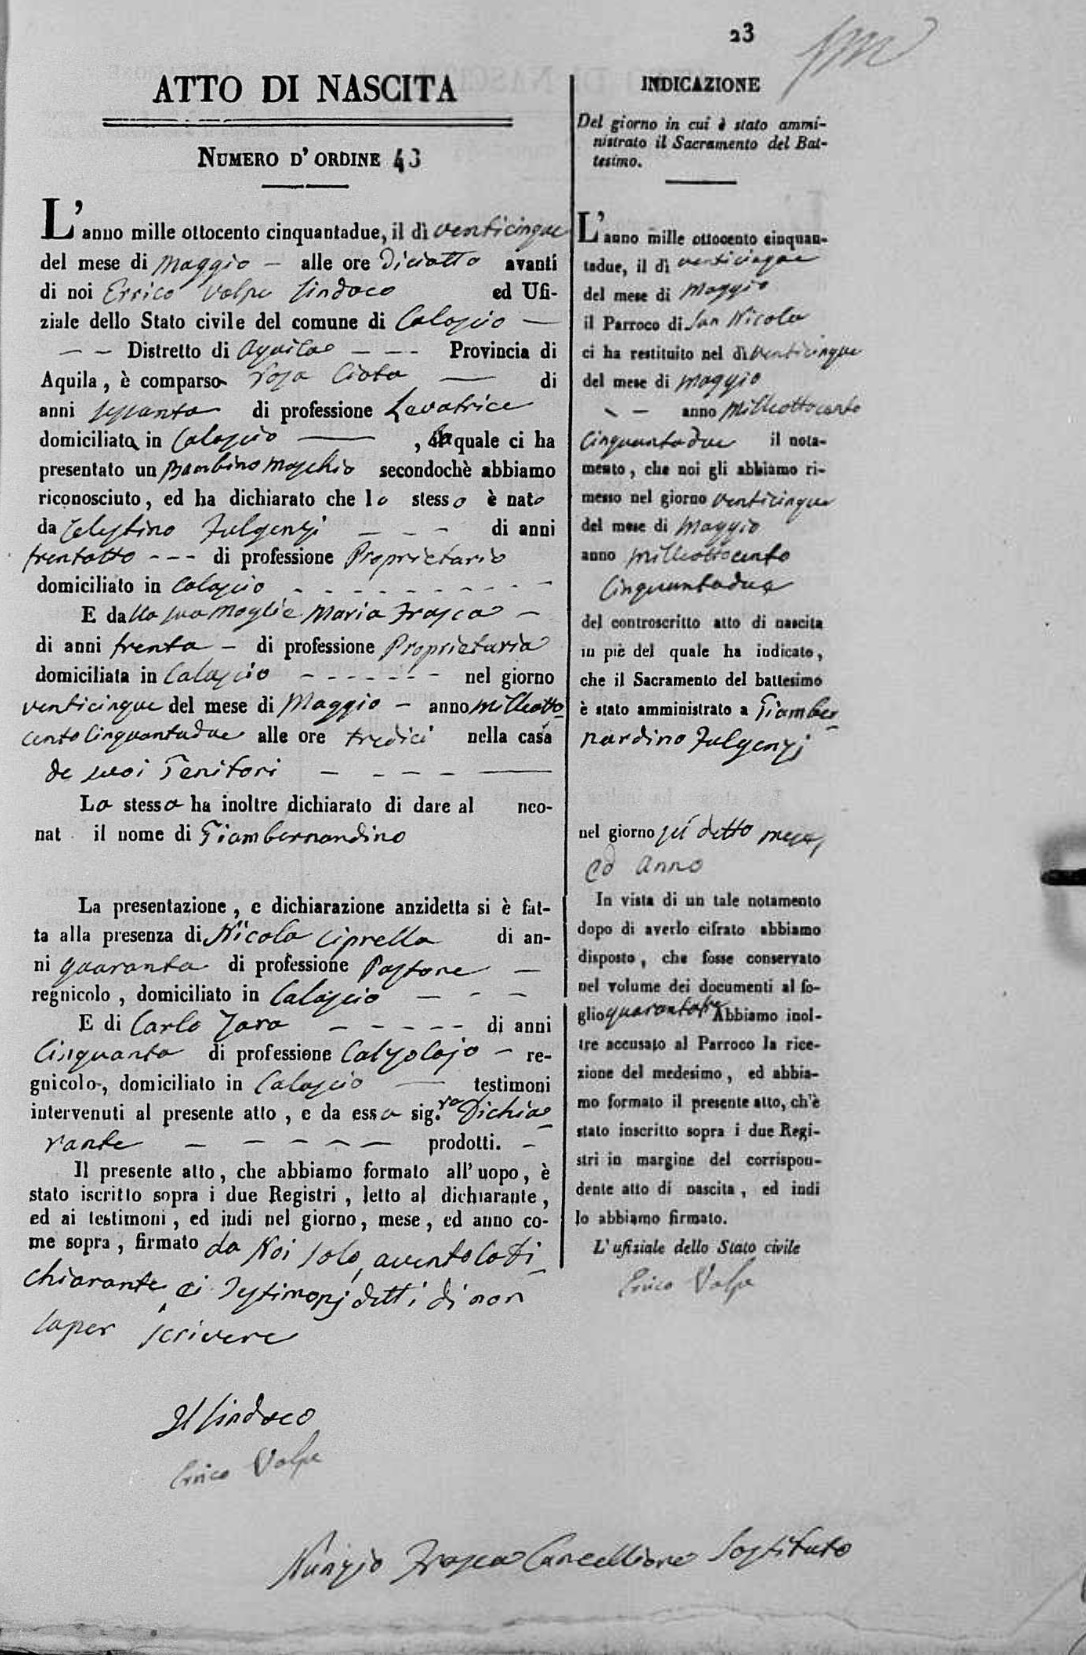 23
ATTO DI NASCITA
NUMERO D' ORDINE 43
L' anno mille ottocento cinquantadue, il dì venticinque
del mese di Maggio - alle ore diciotto avanti
di noi Errico Volpe Sindaco ed Ufi-
ziale dello Stato civile del comune di Calascio —
- - Distretto di Aquila - - - Provincia di
Aquila, è comparsa Rosa Ciota — di
anni sessanta di professione Levatrice
domiciliata in Calascio —, la quale ci ha
presentato un Bambino Maschio secondochè abbiamo
riconosciuto, ed ha dichiarato che lo stesso è nato
da Celestino Fulgenzj - - - di anni
trentotto - - - di professione Proprietario
domiciliato in Calascio - - - - - - - -
E dalla sua Moglie Maria Frasca -
di anni trenta - di professione Proprietaria
domiciliata in Calascio - - - - - - nel giorno
venticinque del mese di Maggio - anno milleotto-
cento Cinquantadue alle ore tredici nella casa
de suoi Genitori - - - - —
La stessa ha inoltre dichiarato di dare al neo-
nat il nome di Giambernardino
La presentazione, e dichiarazione anzidetta si è fat-
ta alla presenza di Nicola Ciprella di an-
ni quaranta di professione Pastore -
regnicolo, domiciliato in Calascio - - -
E di Carlo Zara - - - - - di anni
Cinquanta di professione Calzolajo - re-
gnicolo, domiciliato in Calascio — testimoni
intervenuti al presente atto, e da essa sig.ra Dichia-
rante - - - - - prodotti. -
Il presente atto, che abbiamo formato all' uopo, è
stato iscritto sopra i due Registri, letto al dichiarante,
ed ai testimoni, ed indi nel giorno, mese, ed anno co-
me sopra, firmato da Noi solo, avento la Di-
chiarante, ei Testimonj detti di non
saper scrivere
Il Sindaco
Errico Volpe
Nunzio Frasca Cancelliere Sostituto
INDICAZIONE
Del giorno in cui è stato ammi-
nistrato il Sacramento del Bat-
tesimo.
L' anno mille ottocento cinquan-
tadue, il dì venticinque
del mese di Maggio
il Parroco di San Nicola
ci ha restituito nel dì venticinque
del mese di Maggio
- - anno Milleottocento
Cinquantadue il nota-
mento, che noi gli abbiamo ri-
messo nel giorno venticinque
del mese di Maggio
anno Milleottocento
Cinquantadue
del controscritto atto di nascita
in piè del quale ha indicato,
che il Sacramento del battesimo
è stato amministrato a Giamber-
nardino Fulgenzj
nel giorno sud detto mese,
ed anno
In vista di un tale notamento
dopo di averlo cifrato abbiamo
disposto, che fosse conservato
nel volume dei documenti al fo-
glio quarantatre Abbiamo inol-
tre accusato al Parroco la rice-
zione del medesimo, ed abbia-
mo formato il presente atto, ch'è
stato inscritto sopra i due Regi-
stri in margine del corrispon-
dente atto di nascita, ed indi
lo abbiamo firmato.
L' ufiziale dello Stato civile
Errico Volpe